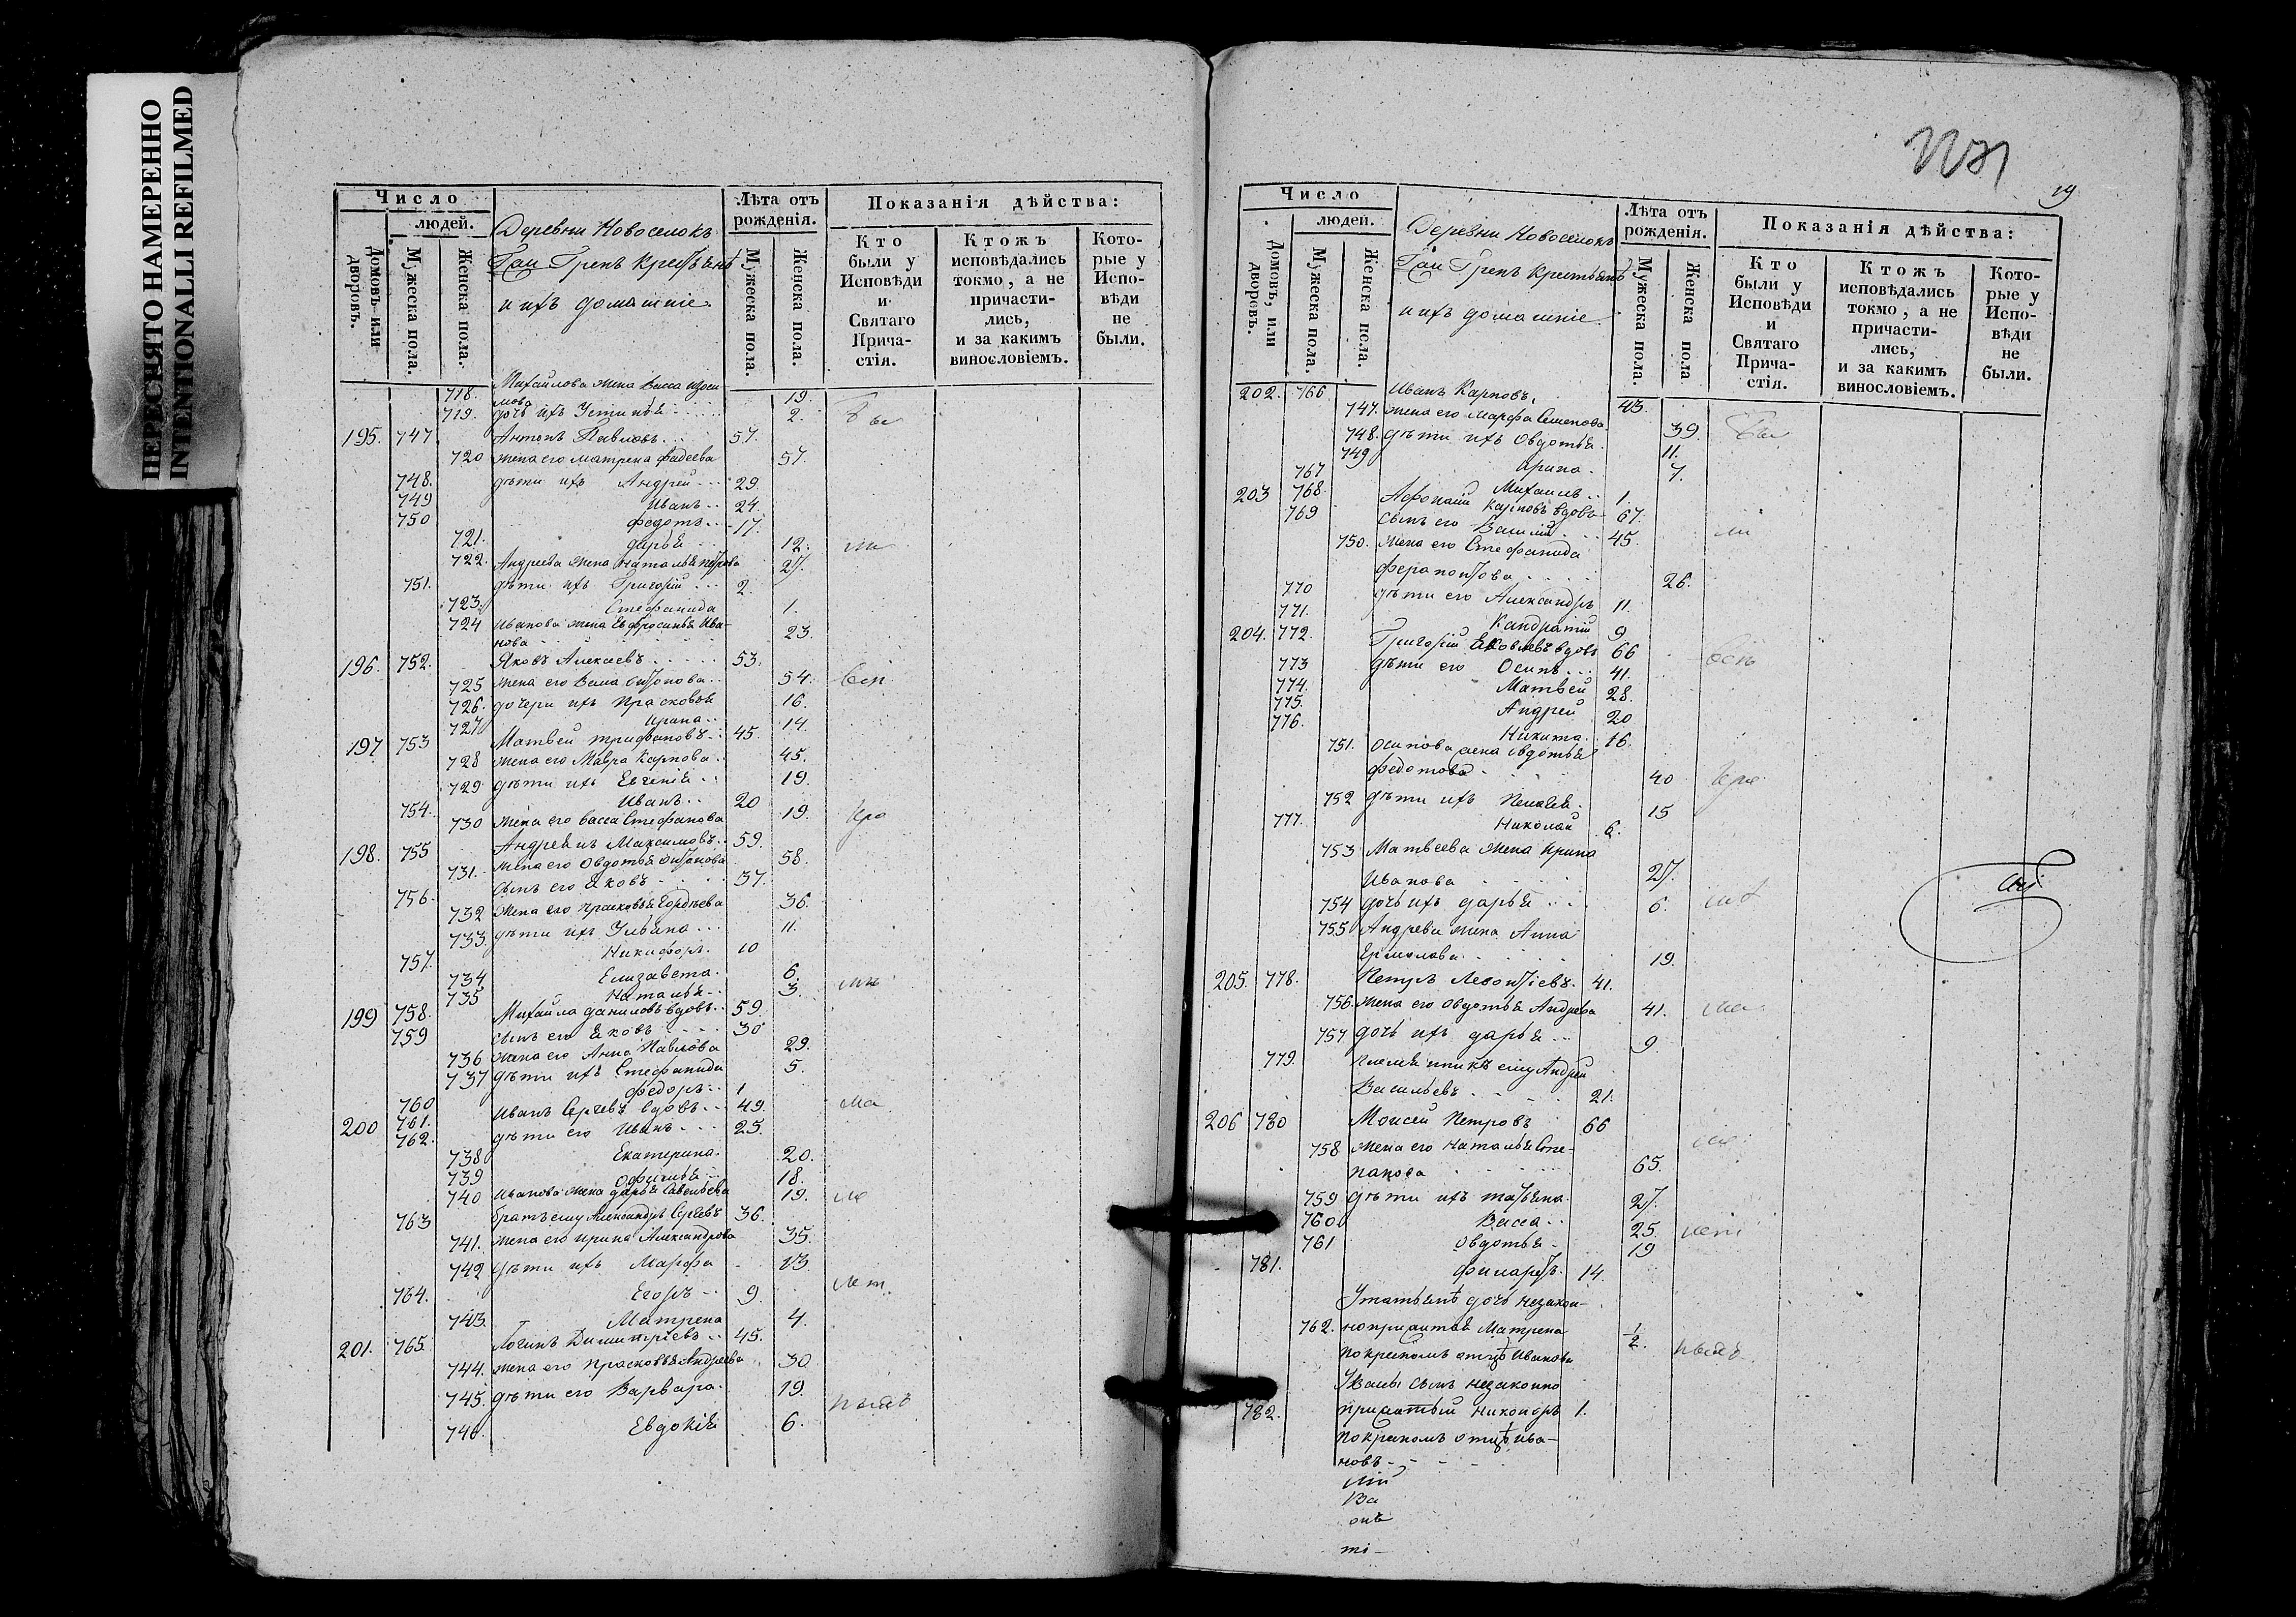 ПЕРЕСНЯТО НАМЕРЕННО
INTENTIONALLI REFILMED
Число
людей.
Домовъ или дворовъ.
Мужеска пола.
Женска пола.
Деревни Новоселокъ
и ихъ домашніе
Лѣта отъ рожденія.
Мужеска пола.
Женска пола.
Показанія дѣйства:
Кто были у Исповѣди и Святаго Прича-стія.
Ктожъ исповѣдались токмо, а не причасти-лись, и за какимъ винословіемъ.
Кото-рые у Испо-вѣди не были.
718. Михайлова жена Васса 19.
719. дочь ихъ Устинья 2. Бы
195. 747. Антонъ Павловъ 57.
720 жена его Матрена Фадеева 57.
748. дѣти ихъ Андрей 29.
749 Иванъ 24.
750 Федотъ 17.
721. Дарья 12. ли
722. Андреева жена Наталья Петрова 27.
751. дѣти ихъ Григорій 2.
723. Стефанида 1.
724 Иванова жена Евфросинья Ива-
нова 23.
196. 752. Яковъ Алексеевъ 53.
725 жена его Васса Антонова 54.
726. дочери ихъ Прасковья 16.
727 Ирина 14.
197 753 Матвей Трифановъ 45.
728 жена его Мавра Карпова 45.
729 дѣти ихъ Евгенія 19.
754. Иванъ 20
730 жена его Васса Стефанова 19.
198. 755 Андреянъ Максимовъ 59.
731. жена его Овдотья Антонова 58.
756. сынъ его Яковъ 37.
732 жена его Прасковья Гордѣева 36.
733 дѣти ихъ Ульяна 11.
757. Никифоръ 10
734 Елизавета 6.
735 Наталья 3.
199 758. Михайла Даниловъ вдовъ 59.
759 сынъ его Яковъ 30
736 жена его Анна Павлова 29.
737 дѣти ихъ Стефанида 5.
760 Федоръ 1
200 761. Иванъ Сергѣевъ вдовъ 49. ма
762. дѣти его Иванъ 25.
738 Екатерина 20.
739 Офимья 18.
740 Иванова жена Дарья Савельева 19.
763 братъ ему Александръ Сергѣевъ 36.
741. жена его Ирина Александрова 35.
742 дѣти ихъ Марфа 13.
764. Егоръ 9.
743. Матрена 4.
201. 765. Логинъ Димитріевъ 45.
744. жена его Прасковья Андреева 30.
745. дѣти его Варвара 19.
746. Евдокія 6.
19
Число
людей.
Домовъ, или дворовъ.
Мужеска пола.
Женска пола.
Деревни Новоселокъ
и ихъ домашніе
Лѣта отъ рожденія.
Мужеска пола.
Женска пола
Показанія дѣйства:
Кто были у Исповѣди и Святаго Прича-стія.
Ктожъ исповѣдались токмо, а не причасти-лись, и за какимъ винословіемъ.
Кото-рые у Испо-вѣди не были.
202. 766. Иванъ Карповъ 43.
747. жена его Марфа Семенова 39. Бы
748. дѣти ихъ Овдотья 11.
749 Арина 7.
767 Михаилъ 1.
203 768. Афонасій Карповъ вдовъ 67.
769 сынъ его Василій 45. ли
750. жена его Стефанида
Ферапонтова 26.
770 дѣти его Александръ 11.
771. Кандратій 9
204. 772. Григорій Яковлевъ вдовъ 66
773 дѣти его Осипъ 41.
774. Матвей 28.
775. Андрей 20
776. Никита 16.
751. Осипова жена Овдотья
Федотова 40
752 дѣти ихъ Пелагея 15
777. Николай 6.
753 Матвеева жена Ирина
Иванова 27.
754 дочь ихъ Дарья 6.
755 Андреева жена Анна
Ермолова 19.
205. 778. Петръ Леонтіевъ 41.
756 жена его Овдотья Андреева 41. ма
757 дочь ихъ Дарья 9.
779. племянникъ ему Андрей
Васильевъ 21.
206 780 Моисей Петровъ 66
758 жена его Наталья Сте-
панова 65.
759 дѣти ихъ Татьяна 27.
760 Васса 25.
761 Овдотья 19
781. Филаретъ 14.
У Татьянѣ дочь незакон-
762. ноприжитая Матрена ½.
по крестномъ отцѣ Иванова
У Вассы сынъ незаконно
782. прижитый Никоноръ 1.
по крестномъ отцѣ Ива-
новъ